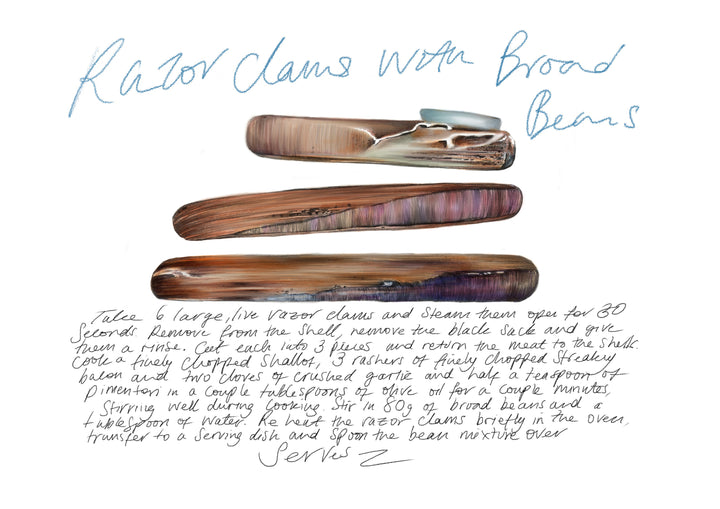 Razor clams with Broad
Beans
Take 6 large, live razor clams and steam them open for 30
seconds. Remove from the shell, remove the black sack and give
them a rinse. Cut each into 3 pieces and return the meat to the shells.
Cook a finely chopped shallot, 3 rashers of finely chopped streaky
bacon and two cloves of crushed garlic and half a teaspoon of
Pimenton in a couple tablespoons of olive oil for a couple minutes,
stirring well during cooking. Stir in 80g of broad beans and a
tablespoon of water. Re heat the razor clams briefly in the oven,
transfer to a serving dish and spoon the bean mixture over
Serves 2